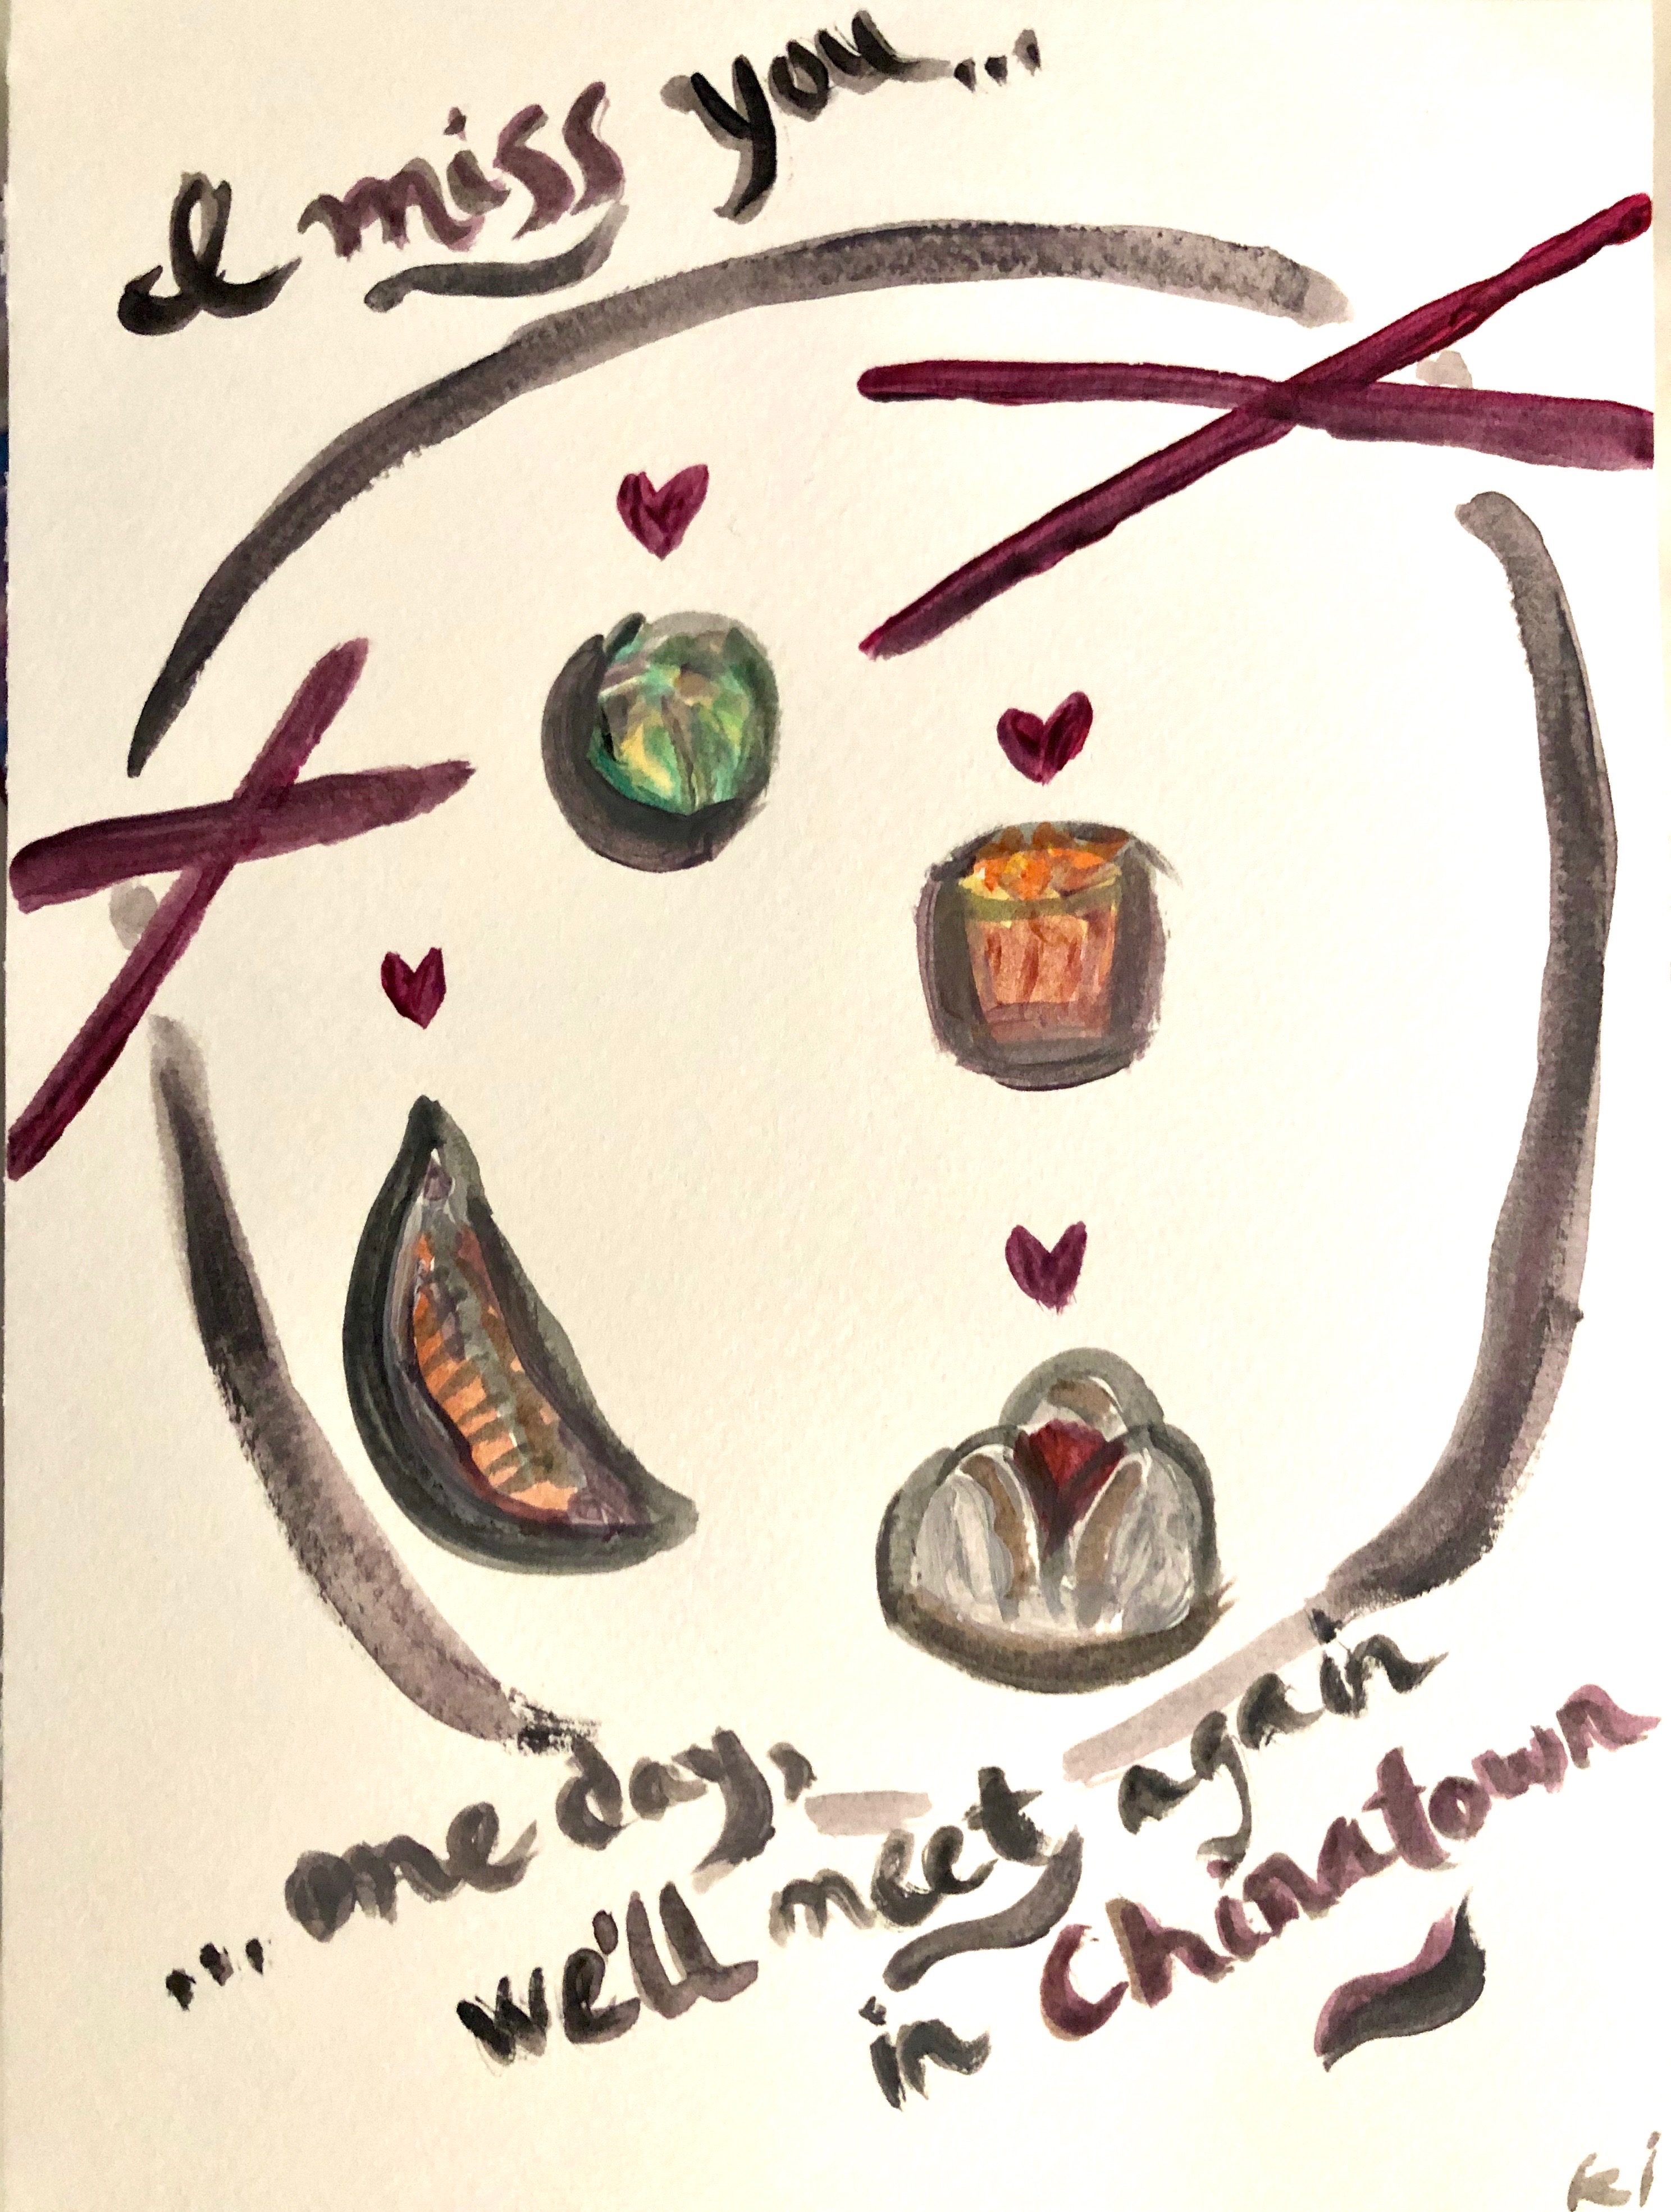 I miss you...
...one day,
we'll meet again
in Chinatown
ki